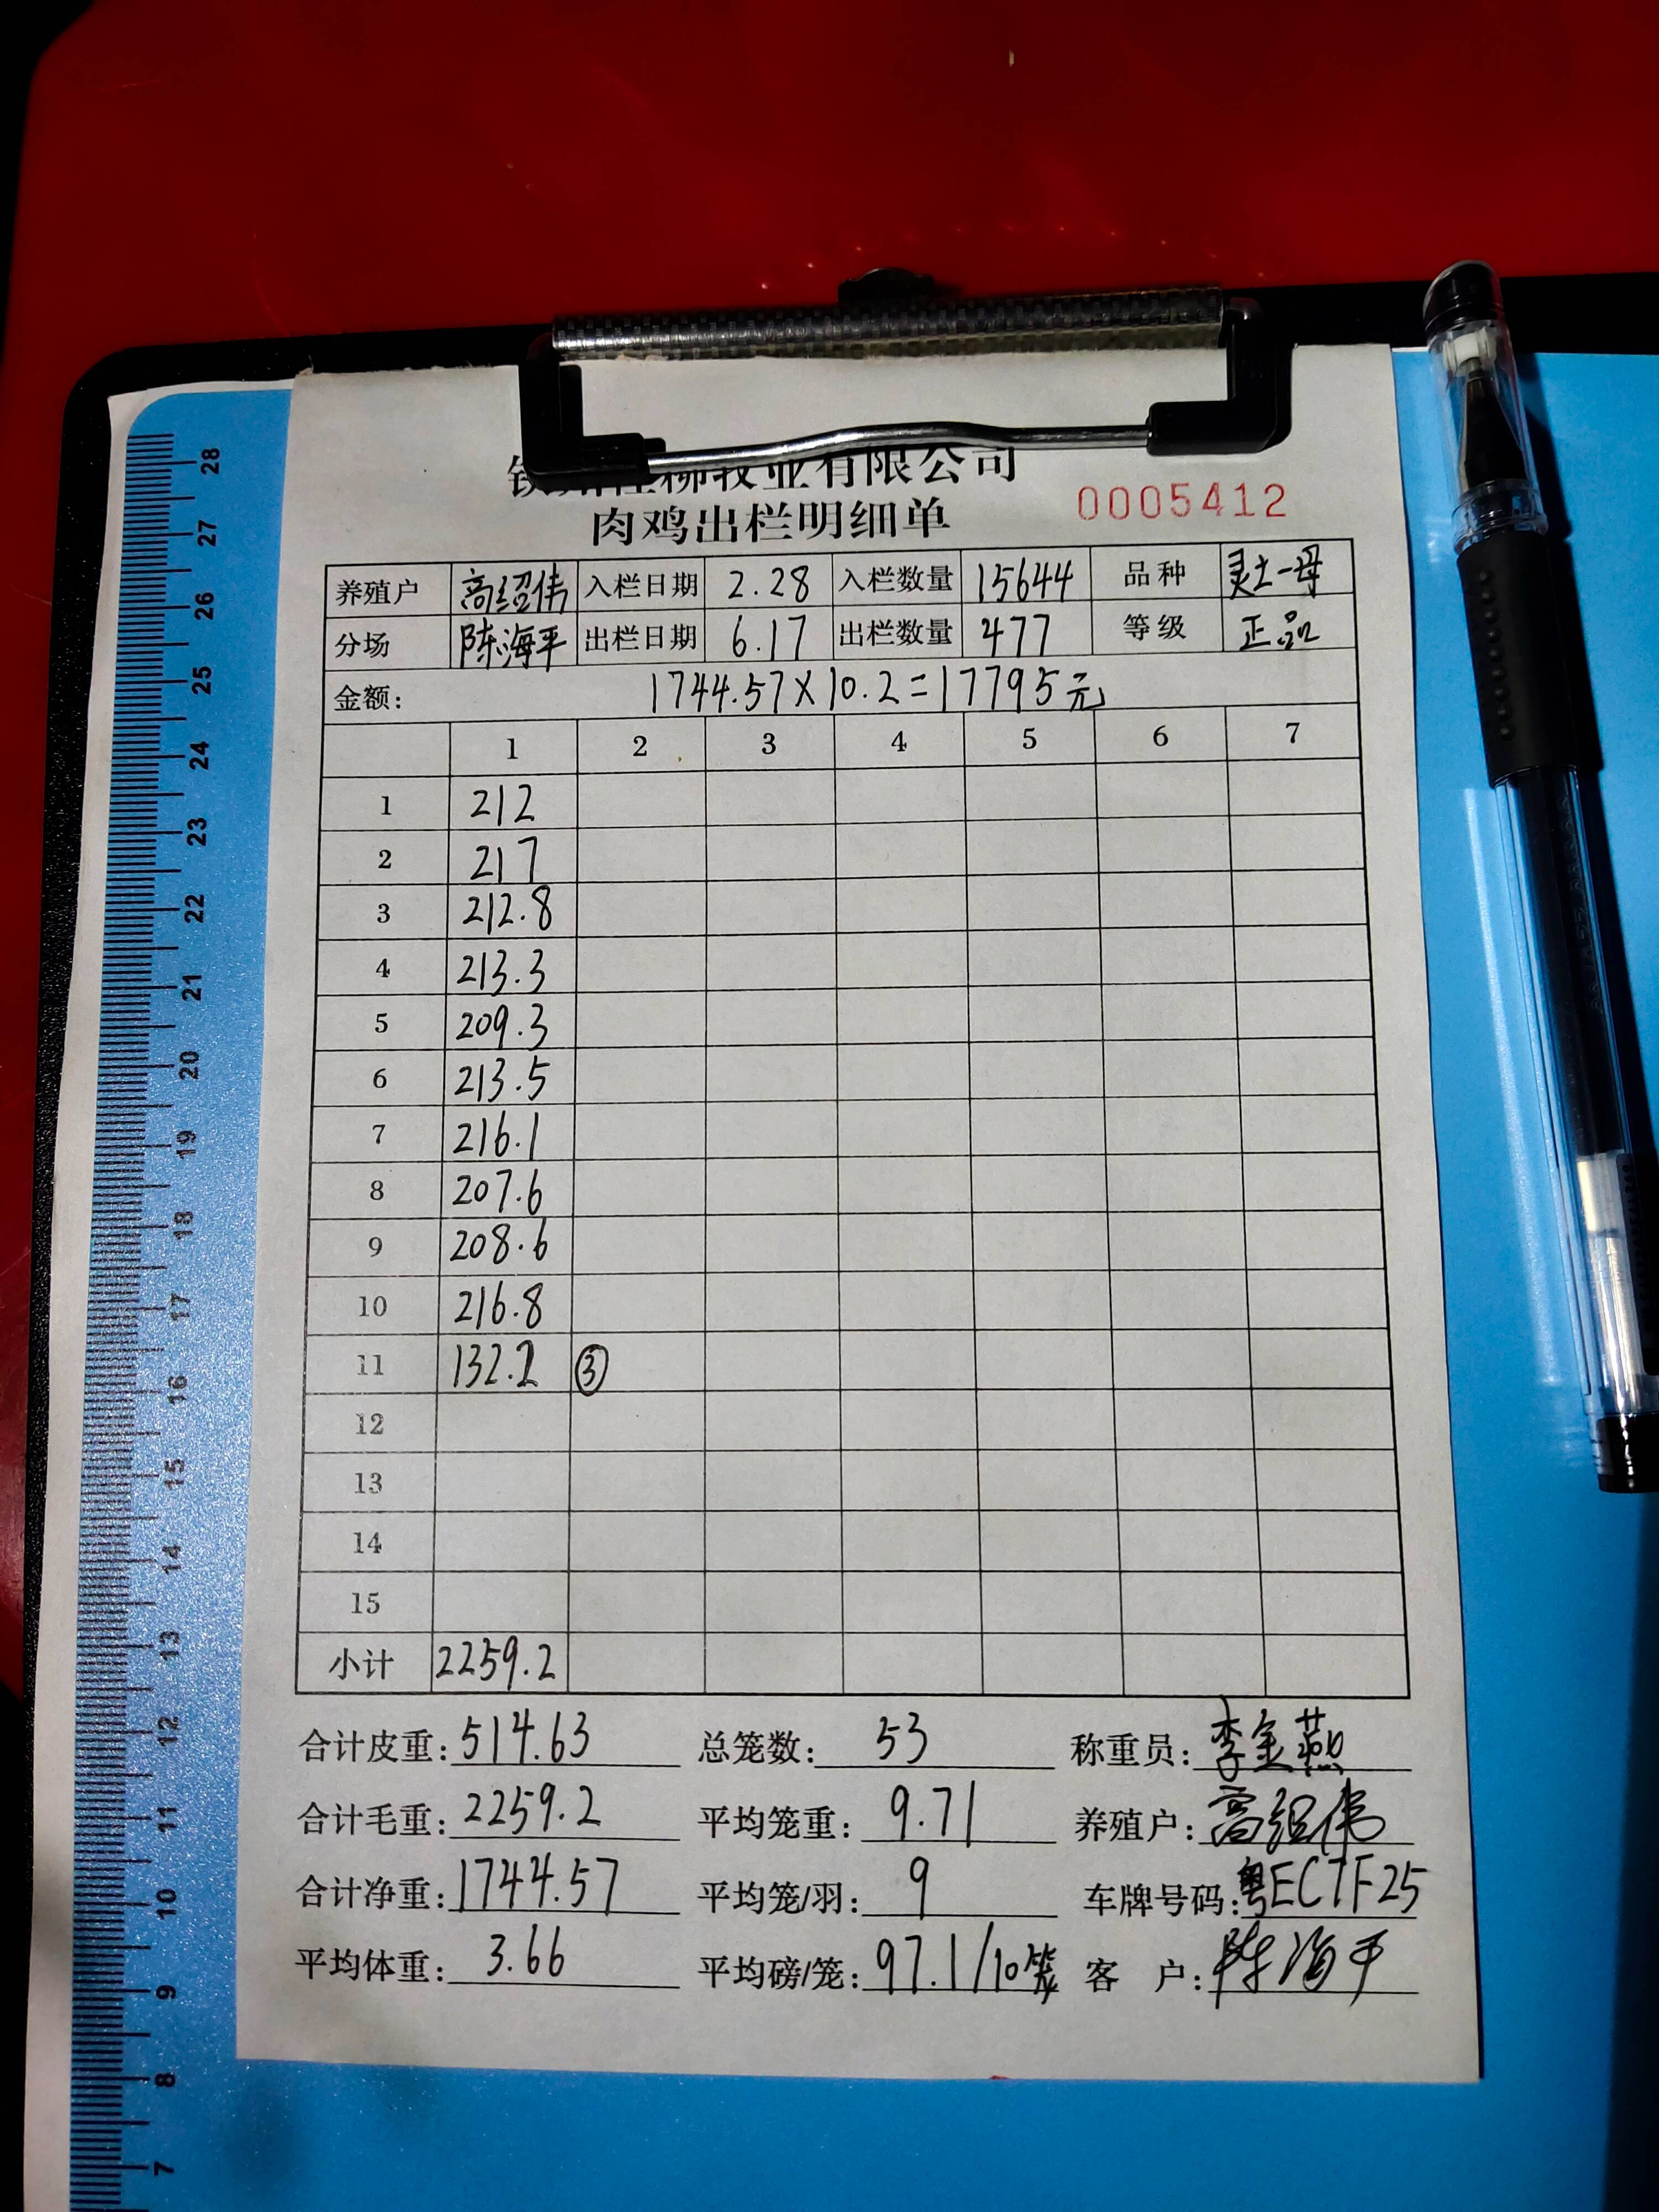 牧业有限公司
肉鸡出栏明细单 0005412
养殖户 高绍伟 入栏日期 2.28 入栏数量 15644 品种 灵土一母
分场 陈海平 出栏日期 6.17 出栏数量 477 等级 正品
金额: 1744.57×10.2=17795元
1 2 3 4 5 6 7
1 212
2 217
3 212.8
4 213.3
5 209.3
6 213.5
7 216.1
8 207.6
9 208.6
10 216.8
11 132.2 ③
12
13
14
15
小计 2259.2
合计皮重: 514.63 总笼数: 53 称重员: 李金燕
合计毛重: 2259.2 平均笼重: 9.71 养殖户: 高绍伟
合计净重: 1744.57 平均笼/羽: 9 车牌号码: 粤ECTF25
平均体重: 3.66 平均磅/笼: 97.1/10笼 客 户: 陈海平
28
27
26
25
24
23
22
21
20
19
18
17
16
15
14
13
12
11
10
9
8
7